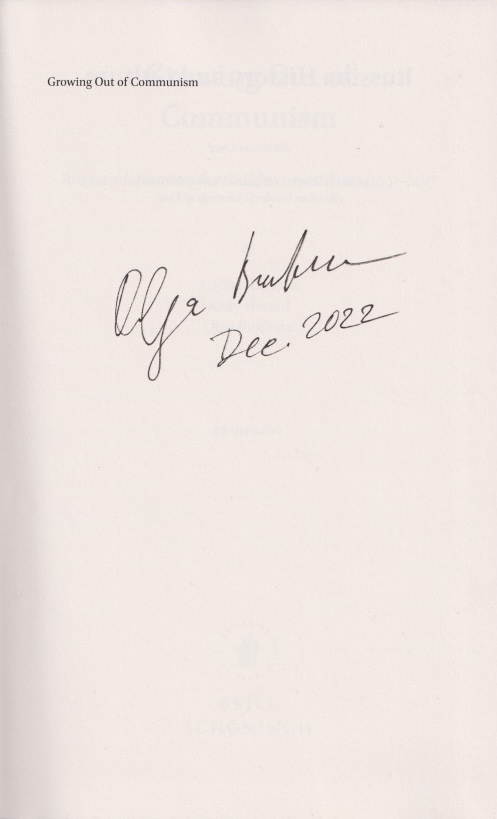 Growing Out of Communism
Olga
Dec. 2022